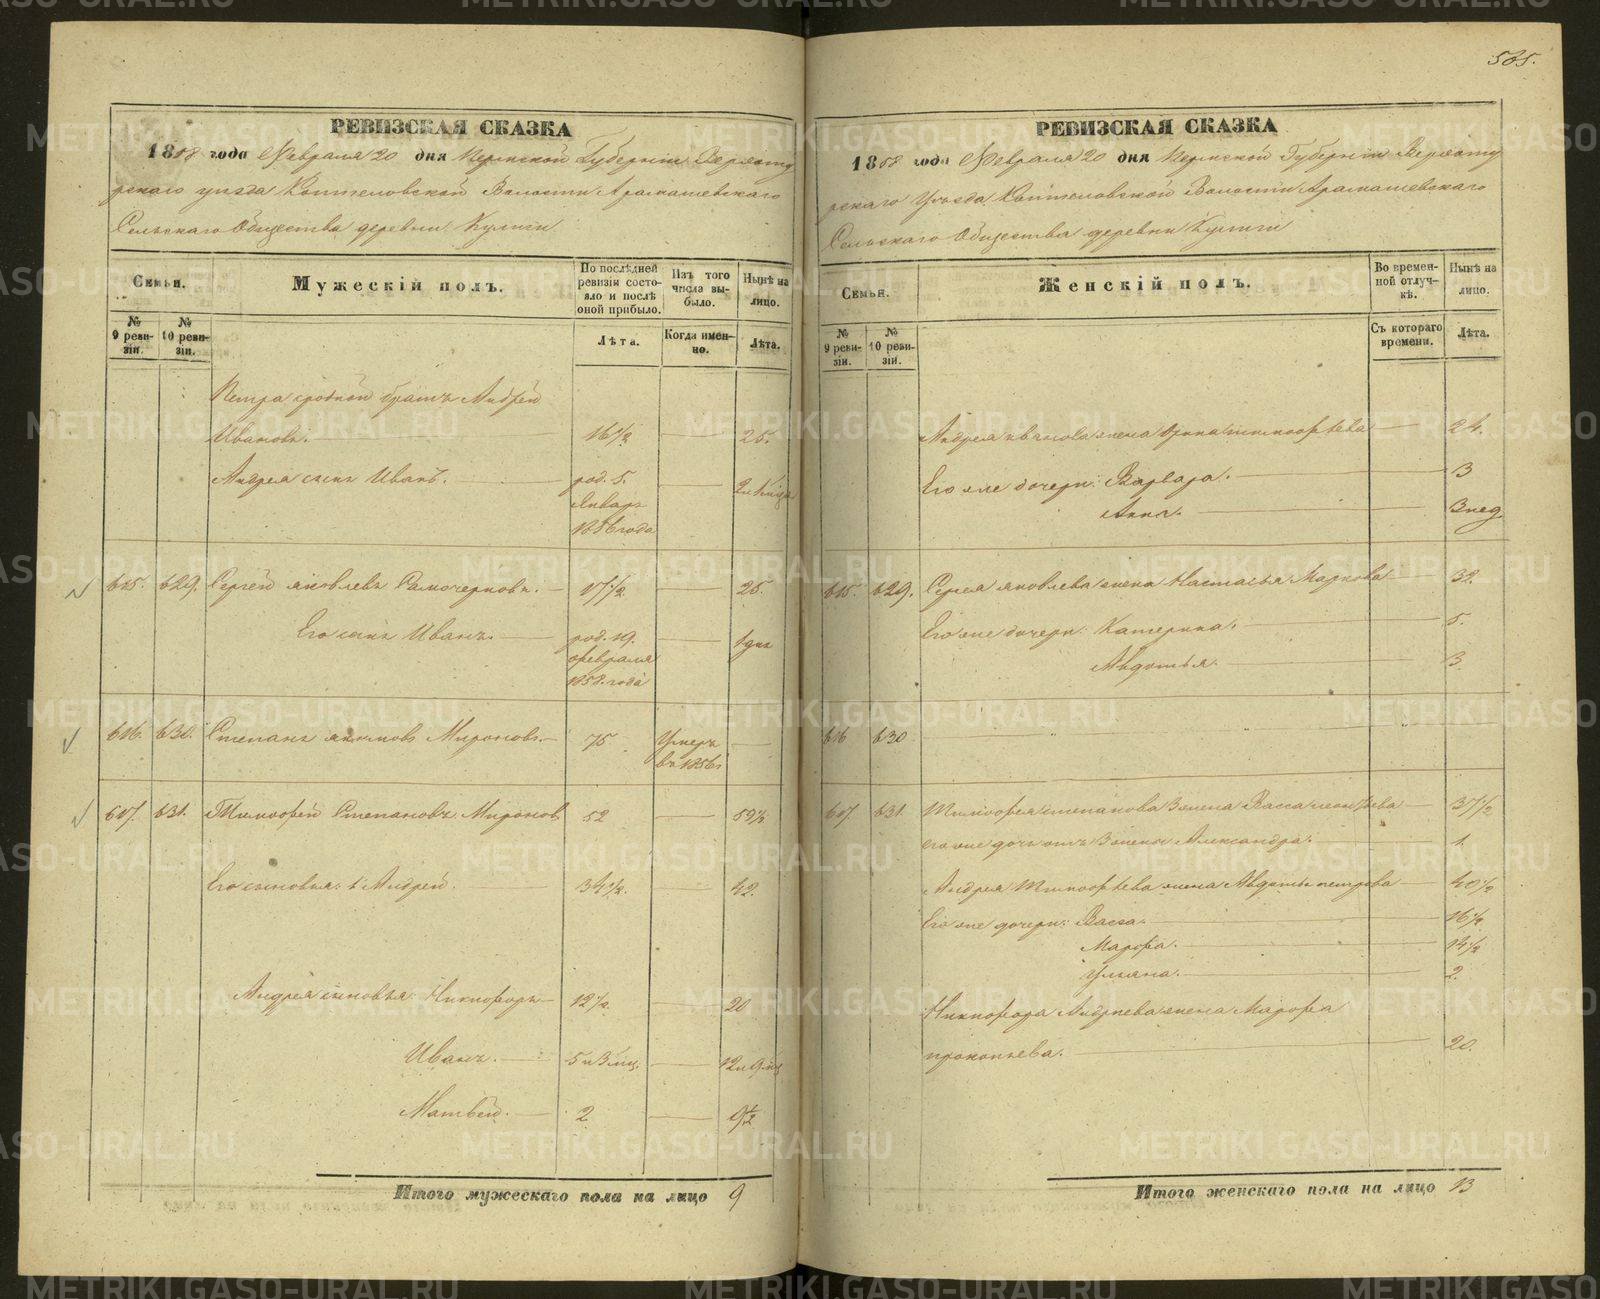 565.
РЕВИЗСКАЯ СКАЗКА
1858 года Февраля 20 дня Пермской Губерніи Верхоту
рскаго уезда Коптеловской Волости Арамашевскаго
Сельскаго Общества деревни Кулиги
Семьи.
№ 9 ревизіи.
№ 10 ревизіи.
Мужескій полъ.
По послѣдней ревизіи состояло и послѣ оной прибыло.
Лѣта.
Изъ того числа выбыло.
Когда именно.
Нынѣ на лицо.
Лѣта.
Петра родной братъ Андрей
Ивановъ. 16½ 25.
Андрея сынъ Иванъ. род. 5.
Январь
1856 года
615. 629. Сергей Яковлевъ Самочерновъ. 17½ 25.
Его сынъ Иванъ. род. 19. 1 день
февраля
1858. года
616. 630. Степанъ Якимовъ Мироновъ. 75 Умеръ
въ 1856
617. 631. Тимофей Степановъ Мироновъ 52 59½
Его сыновья: 1 Андрей. 34½. 42.
Андрея сыновья: Никифоръ 12½. 20
Иванъ. 5 и 3 мц. 12 и 9 мц
Матвей. 2 9½
Итого мужескаго пола на лицо 9
РЕВИЗСКАЯ СКАЗКА
1858 года Февраля 20 дня Пермской Губерніи Верхоту
рскаго Уезда Коптеловской Волости Арамашевскаго
Сельскаго Общества деревни Кулиги
Семьи.
№ 9 ревизіи.
№ 10 ревизіи.
Женскій полъ.
Во временной отлучкѣ.
Съ котораго времени.
Нынѣ на лицо.
Лѣта.
Андрея Иванова жена Ирина Тимофѣева 24.
Его же дочери: Варвара. 3
Анна. 3 нед
615. 629. Сергея Яковлева жена Настасья Маркова 32.
Его же дочери: Катерина. 5.
Авдотья. 3
616 630
617 631. Тимофея Степанова 2 жена Васса Леонтьева 37½
его же дочь отъ 2 жены Александра. 1.
Андрея Тимофѣева жена Авдотья Петрова 40½
Его же дочери: Васса. 16½
Марфа. 14½
Ульяна. 2.
Никифора Андреева жена Марфа
Прокопьева. 20.
Итого женскаго пола на лицо 13
METRIKI.GASO-URAL.RU